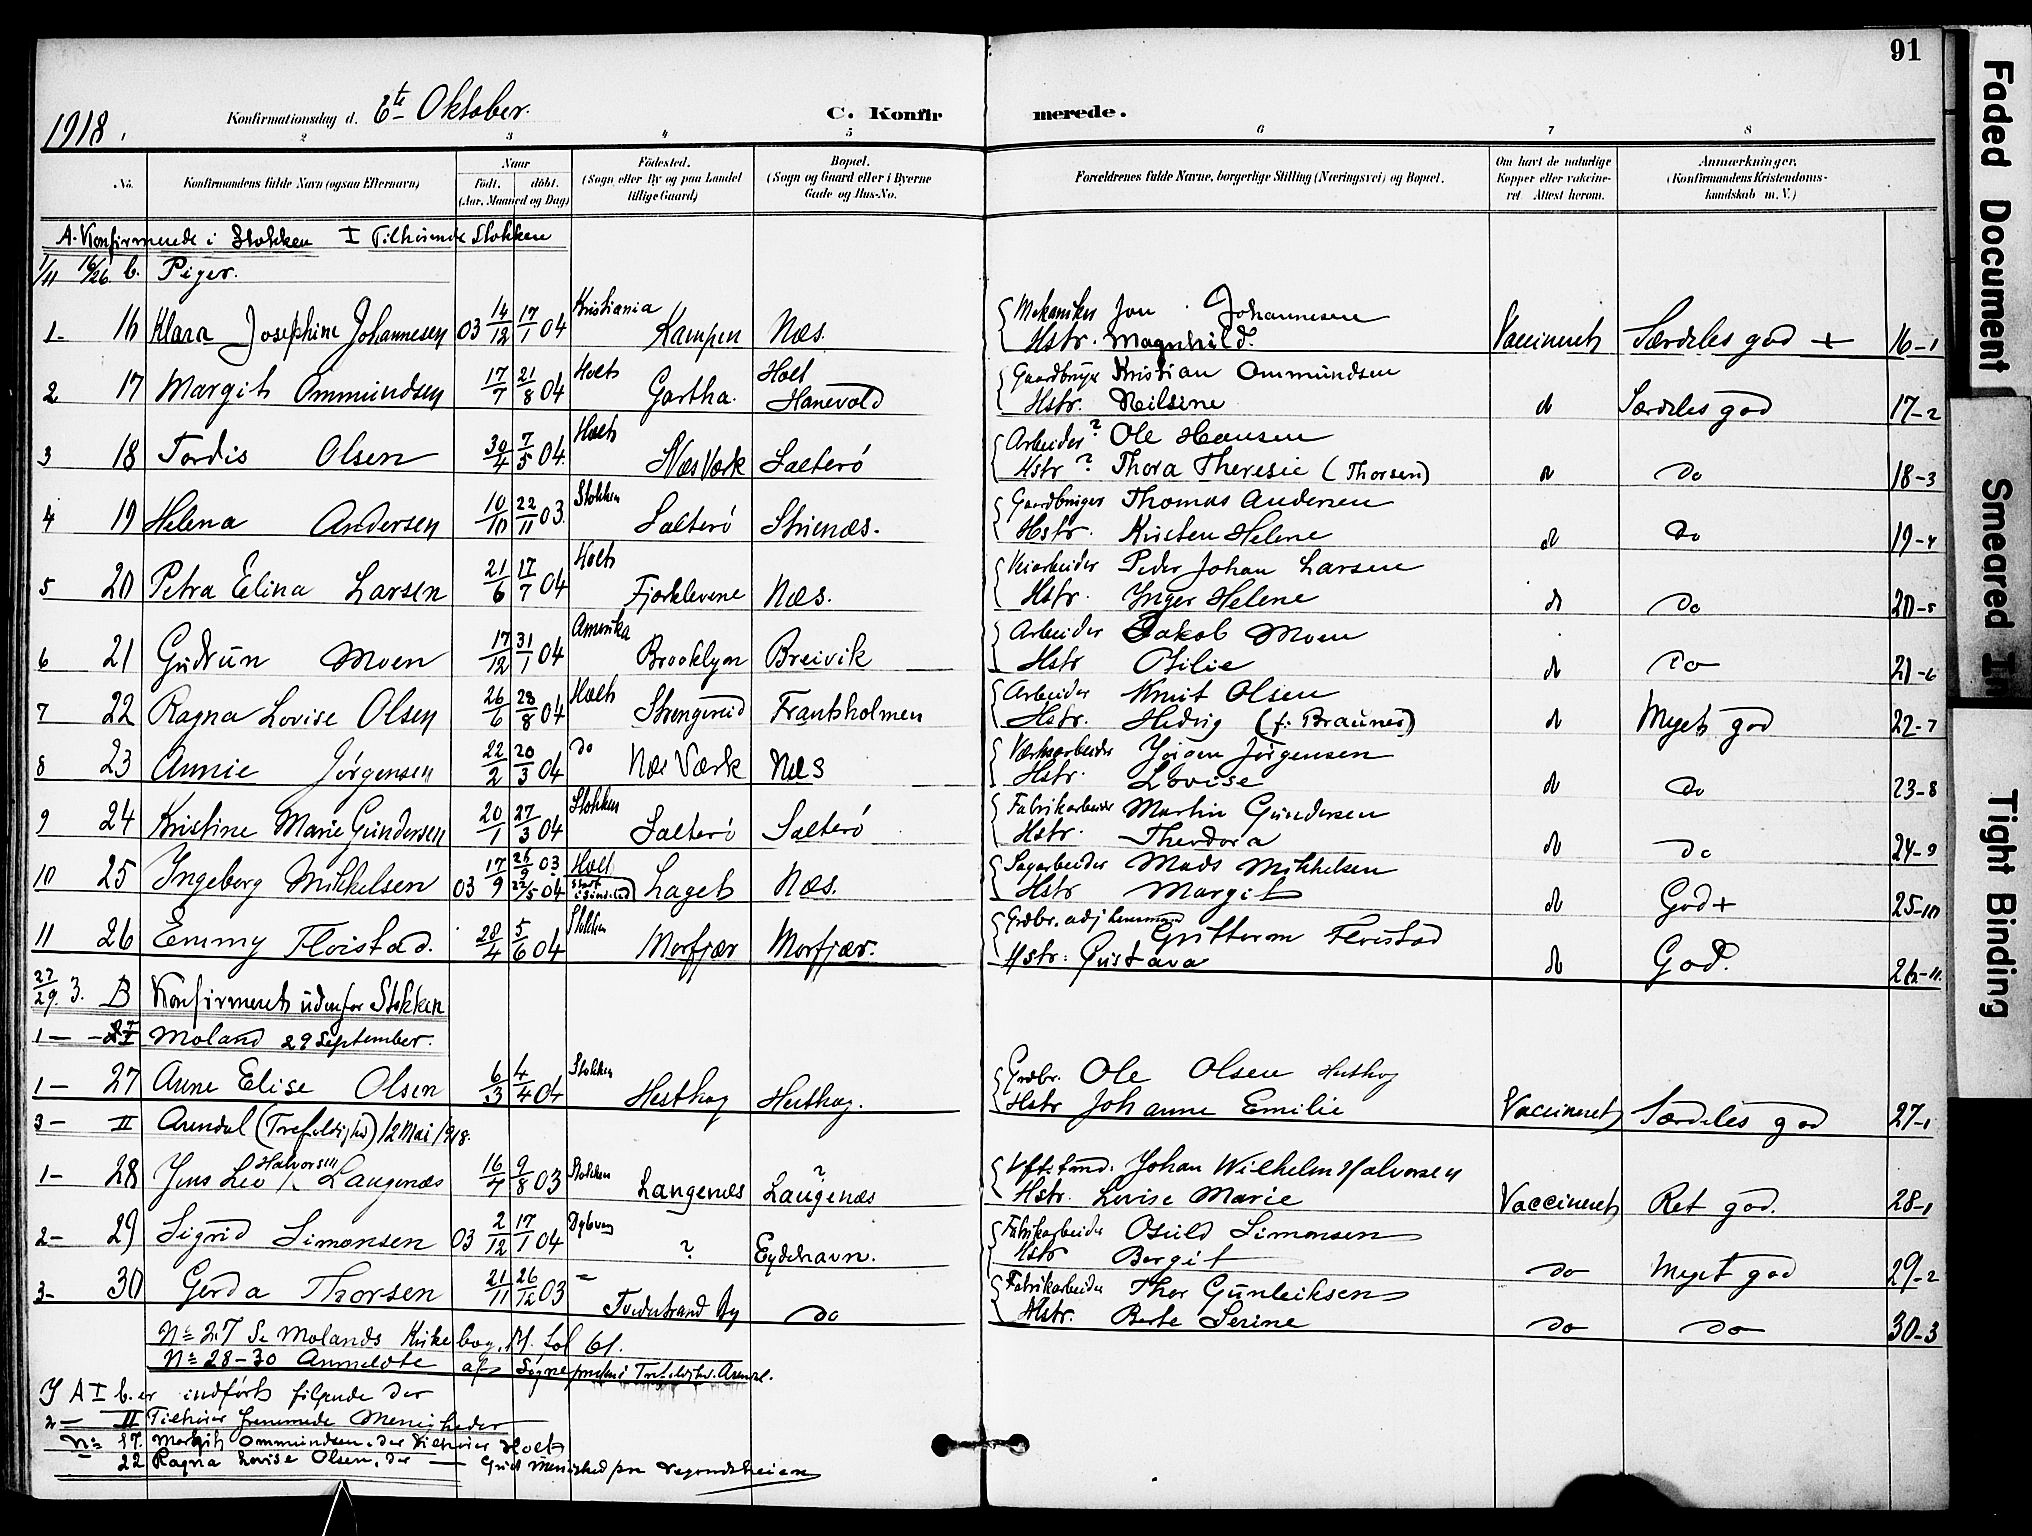 91
1918.
Konfirmationsdag d. 6te Oktober.
C. Konfirmerede.
2 3 4 5 6 7 8
No.
Konfirmandens fulde Navn (ogsaa Efternavn)
Naar
født. døbt.
(Aar, Maaned og Dag)
Fødested.
(Sogn eller By og paa Landet
tillige Gaard)
Bopæl.
(Sogn og Gaard eller i Byerne
Gade og Hus-No.
Forældrenes fulde Navne, borgerlige Stilling (Næringsvei) og Bopæl.
Om havt de naturlige
Kopper eller vaccine-
ret Attest herom.
Anmærkninger,
(Konfirmandens Kristendoms-
kundskab m. V.)
A. Konfirmerede i Stokken I Tilhørende Stokken
1/11 16/26 b. Piger.
1- 16 Klara Josephine Johannesen 03 14/12 17/1 04 Kristiania Kampen Næs. Mekaniker Jon Johannesen
Hstr. Magnhild. Vaccineret Særdeles god + 16-1
2 17 Margit Ommundsen 17/7 21/8 04 Holt Gartha. Holt Hanevold Gaardbruger Kristian Ommundsen
Hstr. Nilsine do Særdeles god 17-2
3 18 Tordis Olsen 30/4 7/5 04. Holt Næs Værk Salterø Arbeider ? Ole Hansen
Hstr ? Thora Theresie (Thorsen) do Do 18-3
4 19 Helena Andersen 10/10 22/11 03. Stokken Salterø Strienæs. Gaardbruger Thomas Andersen
Hstr. Kirsten Helene do Do 19-4
5 20 Petra Elina Larsen 21/6 17/7 04 Holt Fjorklevene Næs. Veiarbeider Peder Johan Larsen
Hstr. Inger Helene do Do 20-5
6 21 Gudrun Moen 17/12 31/1 04 Amerika Brooklyn Breivik Arbeider Jakob Moen
Hstr Otilie do Do 21-6
7 22 Ragna Lovise Olsen 26/6 28/8 04 Holt Strengereid Frantsholmen Arbeider Knut Olsen
Hstr. Hedvig (f. Braunes) do Meget god 22-7
8 23 Annie Jørgensen 22/2 20/3 04 do Næs Værk Næs Værksarbeider Jørgen Jørgensen
Hstr. Lovise do Do 23-8
9 24 Kristine Marie Gundersen 20/1 27/3 04 Stokken Salterø Salterø Fabrikarbeider Martin Gundersen
Hstr. Theodora do Do 24-9
10 25 Ingeborg Mikkelsen 03 17/9 26/9 03 22/5 04 Holt Laget Næs. Sagarbeider Mads Mikkelsen
Hstr Margit do God + 25-10
11 26 Emmy Fløistad. 28/4 5/6 04 Stokken Morfjær Morfjær. Grdbr. adj. lensmand Guttorm Fløistad
Hstr: Gustava do God. 26-11.
27/29. 3. B Konfirmeret udenfor Stokken
1- Moland 29 September.
1- 27 Anne Elise Olsen 6/3 4/4 04 Stokken Hesthag Hesthag. Grdbr. Ole Olsen Hesthag
Hstr Johanne Emilie Vaccineret Særdeles god 27-1
3- II Arendal (Trefoldighed) 12 Mai 1918.
1- 28 Jens Leo Halvorsen Langenæs 16/7 9/8 03 Stokken Langenæs ? Langenæs Johan Wilhelm Halvorsen
Hstr. Lovise Marie Vaccineret Ret god. 28-1
2- 29 Sigrid Simonsen 03 2/12 17/1 04 Dybvag ? Eydehavn. Fabrikarbeider Osuld Simonsen
Hstr Bergit do Meget god 29-2
3- 30 Gerda Thorsen 21/11 26/12 03 - Tvedestrand By do Fabrikarbeider Thor Gunleiksen
Hstr. Berte Serine do do 30-3
No 27 Se Molands Kirkebog, Fol 61.
No 28-30 Anmeldte af Sognepresten i Trefoldighed. Arendal.
I A I b. er indført følgende der
2- II Tilhører fremmede Menigheder
No 17. Margit Ommundsen, der tilhører Holt
- 22 Ragna Lovise Olsen, der — menighed paa

Faded Document
Smeared In
Tight Binding